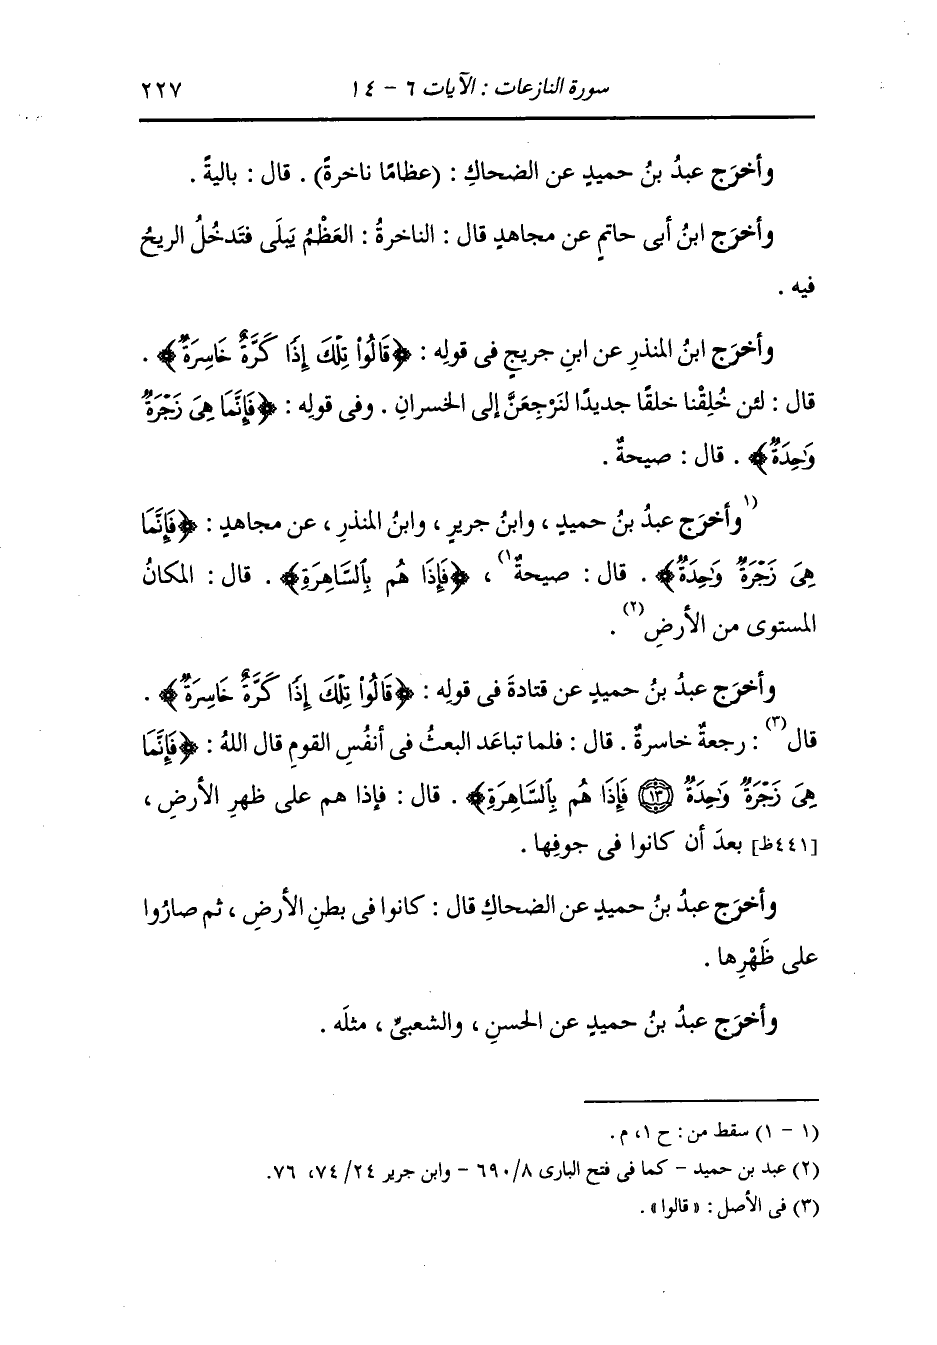 سورة النازعات : الآيات ٦ - ١٤ ٢٢٧
وأخرَج عبدُ بنُ حميدٍ عن الضحاكِ : (عظامًا ناخرةً) . قال : باليةً .
وأخرَج ابنُ أبى حاتمٍ عن مجاهدٍ قال : الناخرةُ : العَظْمُ يَبلَى فتَدخُلُ الريحُ
فيه .
وأخرَج ابنُ المنذرِ عن ابنِ جريجٍ فى قولِه : ﴿قَالُوا۟ تِلْكَ إِذًا كَرَّةٌ خَاسِرَةٌ﴾ .
قال : لئن خُلِقْنا خلقًا جديدًا لنَرْجِعَنَّ إلى الخسرانِ . وفى قولِه : ﴿فَإِنَّمَا هِىَ زَجْرَةٌ
وَٰحِدَةٌ﴾ . قال : صيحةٌ .
(١)وأخرَج عبدُ بنُ حميدٍ ، وابنُ جريرٍ ، وابنُ المنذرِ ، عن مجاهدٍ : ﴿فَإِنَّمَا
هِىَ زَجْرَةٌ وَٰحِدَةٌ﴾ . قال : صيحةٌ(١) ، ﴿فَإِذَا هُم بِٱلسَّاهِرَةِ﴾ . قال : المكانُ
المستوى من الأرضِ(٢) .
وأخرَج عبدُ بنُ حميدٍ عن قتادةَ فى قولِه : ﴿قَالُوا۟ تِلْكَ إِذًا كَرَّةٌ خَاسِرَةٌ﴾ .
قال(٣) : رجعةٌ خاسرةٌ . قال : فلما تباعَد البعثُ فى أنفُسِ القومِ قال اللهُ : ﴿فَإِنَّمَا
هِىَ زَجْرَةٌ وَٰحِدَةٌ ۝١٣ فَإِذَا هُم بِٱلسَّاهِرَةِ﴾ . قال : فإذا هم على ظهرِ الأرضِ ،
[٤٤١ظ] بعدَ أن كانوا فى جوفِها .
وأخرَج عبدُ بنُ حميدٍ عن الضحاكِ قال : كانوا فى بطنِ الأرضِ ، ثم صارُوا
على ظَهْرِها .
وأخرَج عبدُ بنُ حميدٍ عن الحسنِ ، والشعبىِّ ، مثلَه .
(١ - ١) سقط من : ح ١، م.
(٢) عبد بن حميد - كما فى فتح البارى ٦٩٠/٨ - وابن جرير ٢٤/ ٧٤، ٧٦.
(٣) فى الأصل : « قالوا» .